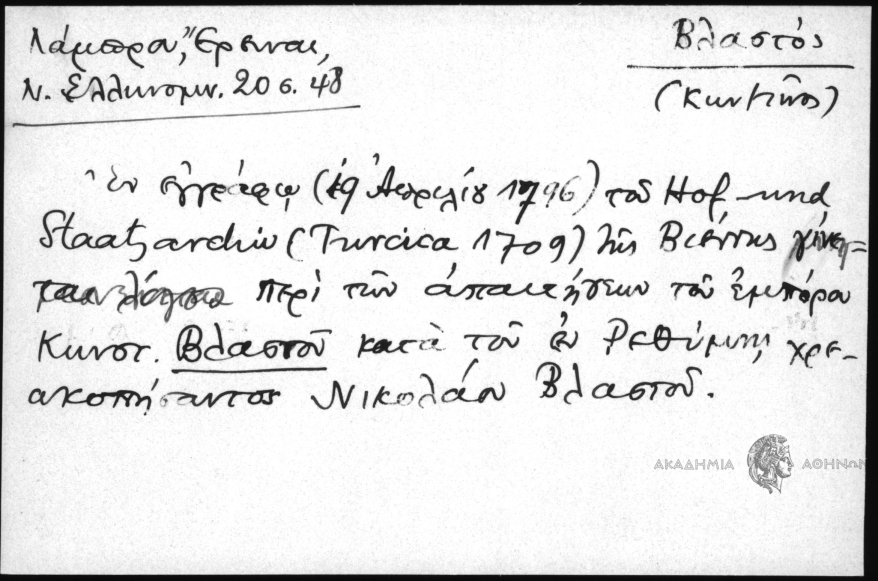 Λάμπρου, "Έρευναι,
Ν. Ελληνομν. 20 σ. 48
Βλαστὸς
(Κων/τῖνος)
Ἐν ἐγγράφῳ (19 Ἀπριλίου 1796) τοῦ Hof- und
Staatsarchiv (Turcica 1709) τῆς Βιέννης γίνε=
ται λόγος περὶ τῶν ἀπαιτήσεων τοῦ ἐμπόρου
Κωνστ. Βλαστοῦ κατὰ τοῦ ἐν Ρεθύμνῃ χρε-
ακοπήσαντος Νικολάου Βλαστοῦ.
ΑΚΑΔΗΜΙΑ ΑΘΗΝΩΝ